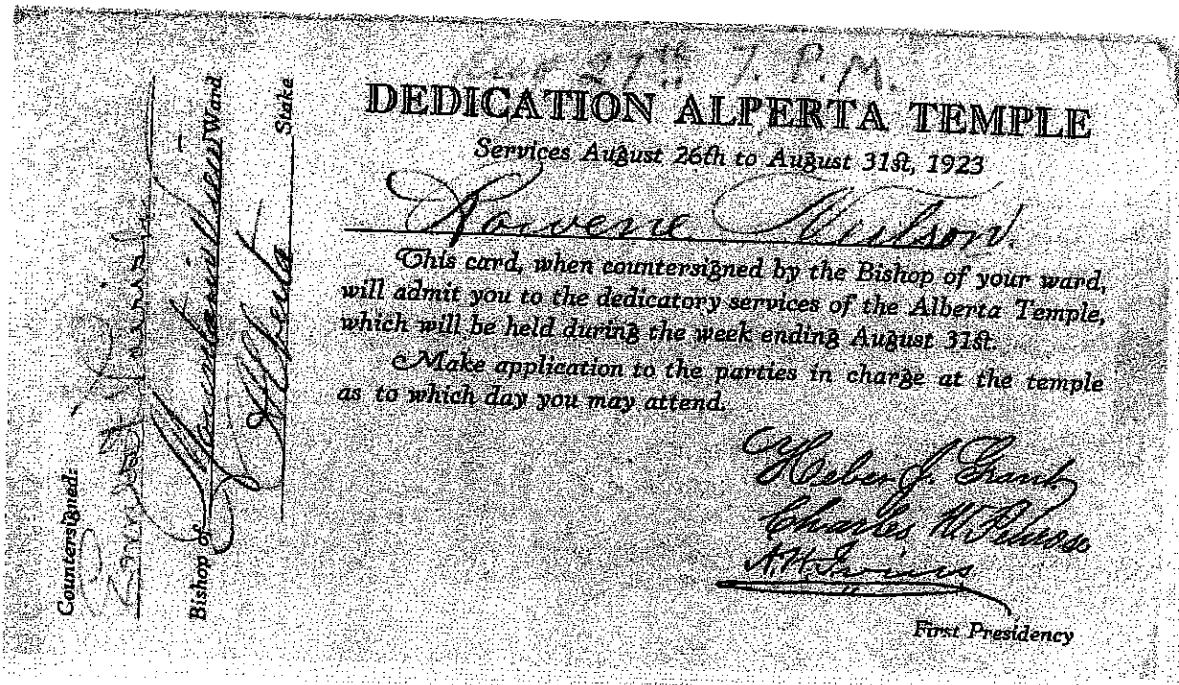 27th 7. P.M.
DEDICATION ALPERTA TEMPLE
Services August 26th to August 31st, 1923
Rowene Neilson.
This card, when countersigned by the Bishop of your ward,
will admit you to the dedicatory services of the Alberta Temple,
which will be held during the week ending August 31st.
Make application to the parties in charge at the temple
as to which day you may attend.
Heber J. Grant
Charles W. Penrose
A.W. Ivins
First Presidency
Countersigned:
Bishop of Mountainview Ward
Alberta Stake